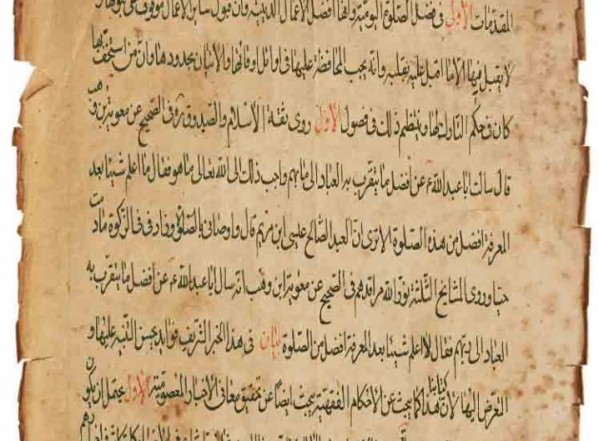 المقدمات الأولى في فضل الصلوة اليومية وانها افضل الاعمال الدينية وان قبول سائر الاعمال موقوف على قبولها و
لا يقبل منها الا ما اقبل عليه بقلبه وانه يجب المحافظة عليها في اوائل اوقاتها والاتيان بحدودها وان من استخف بها
كان في حكم التارك لها وينتظم ذلك في فصول الأول روى ثقة الاسلام والصدوق ره في الصحيح عن معوية بن وهب
قال سالت ابا عبد الله ع عن افضل ما يتقرب به العباد الى ربهم واحب ذلك الى الله تعالى ما هو فقال ما اعلم شيئا بعد
المعرفة افضل من هذه الصلوة الا ترى ان العبد الصالح عيسى ابن مريم قال واوصاني بالصلوة والزكوة ما دمت
حيا وروى المشايخ الثلثة نور الله مراقدهم في الصحيح عن معوية ابن وهب انه سال ابا عبد الله ع عن افضل ما يتقرب به
العباد الى ربهم فقال لا اعلم شيئا بعد المعرفة افضل من الصلوة بيان في هذا الخبر الشريف فوايد يحسن التنبيه عليها و
التعرض اليها لان كتابنا هذا كما يبحث عن الاحكام الفقهية يبحث ايضا عن تحقيق معاني الاخبار المعصومية الأول يحتمل ان يكون